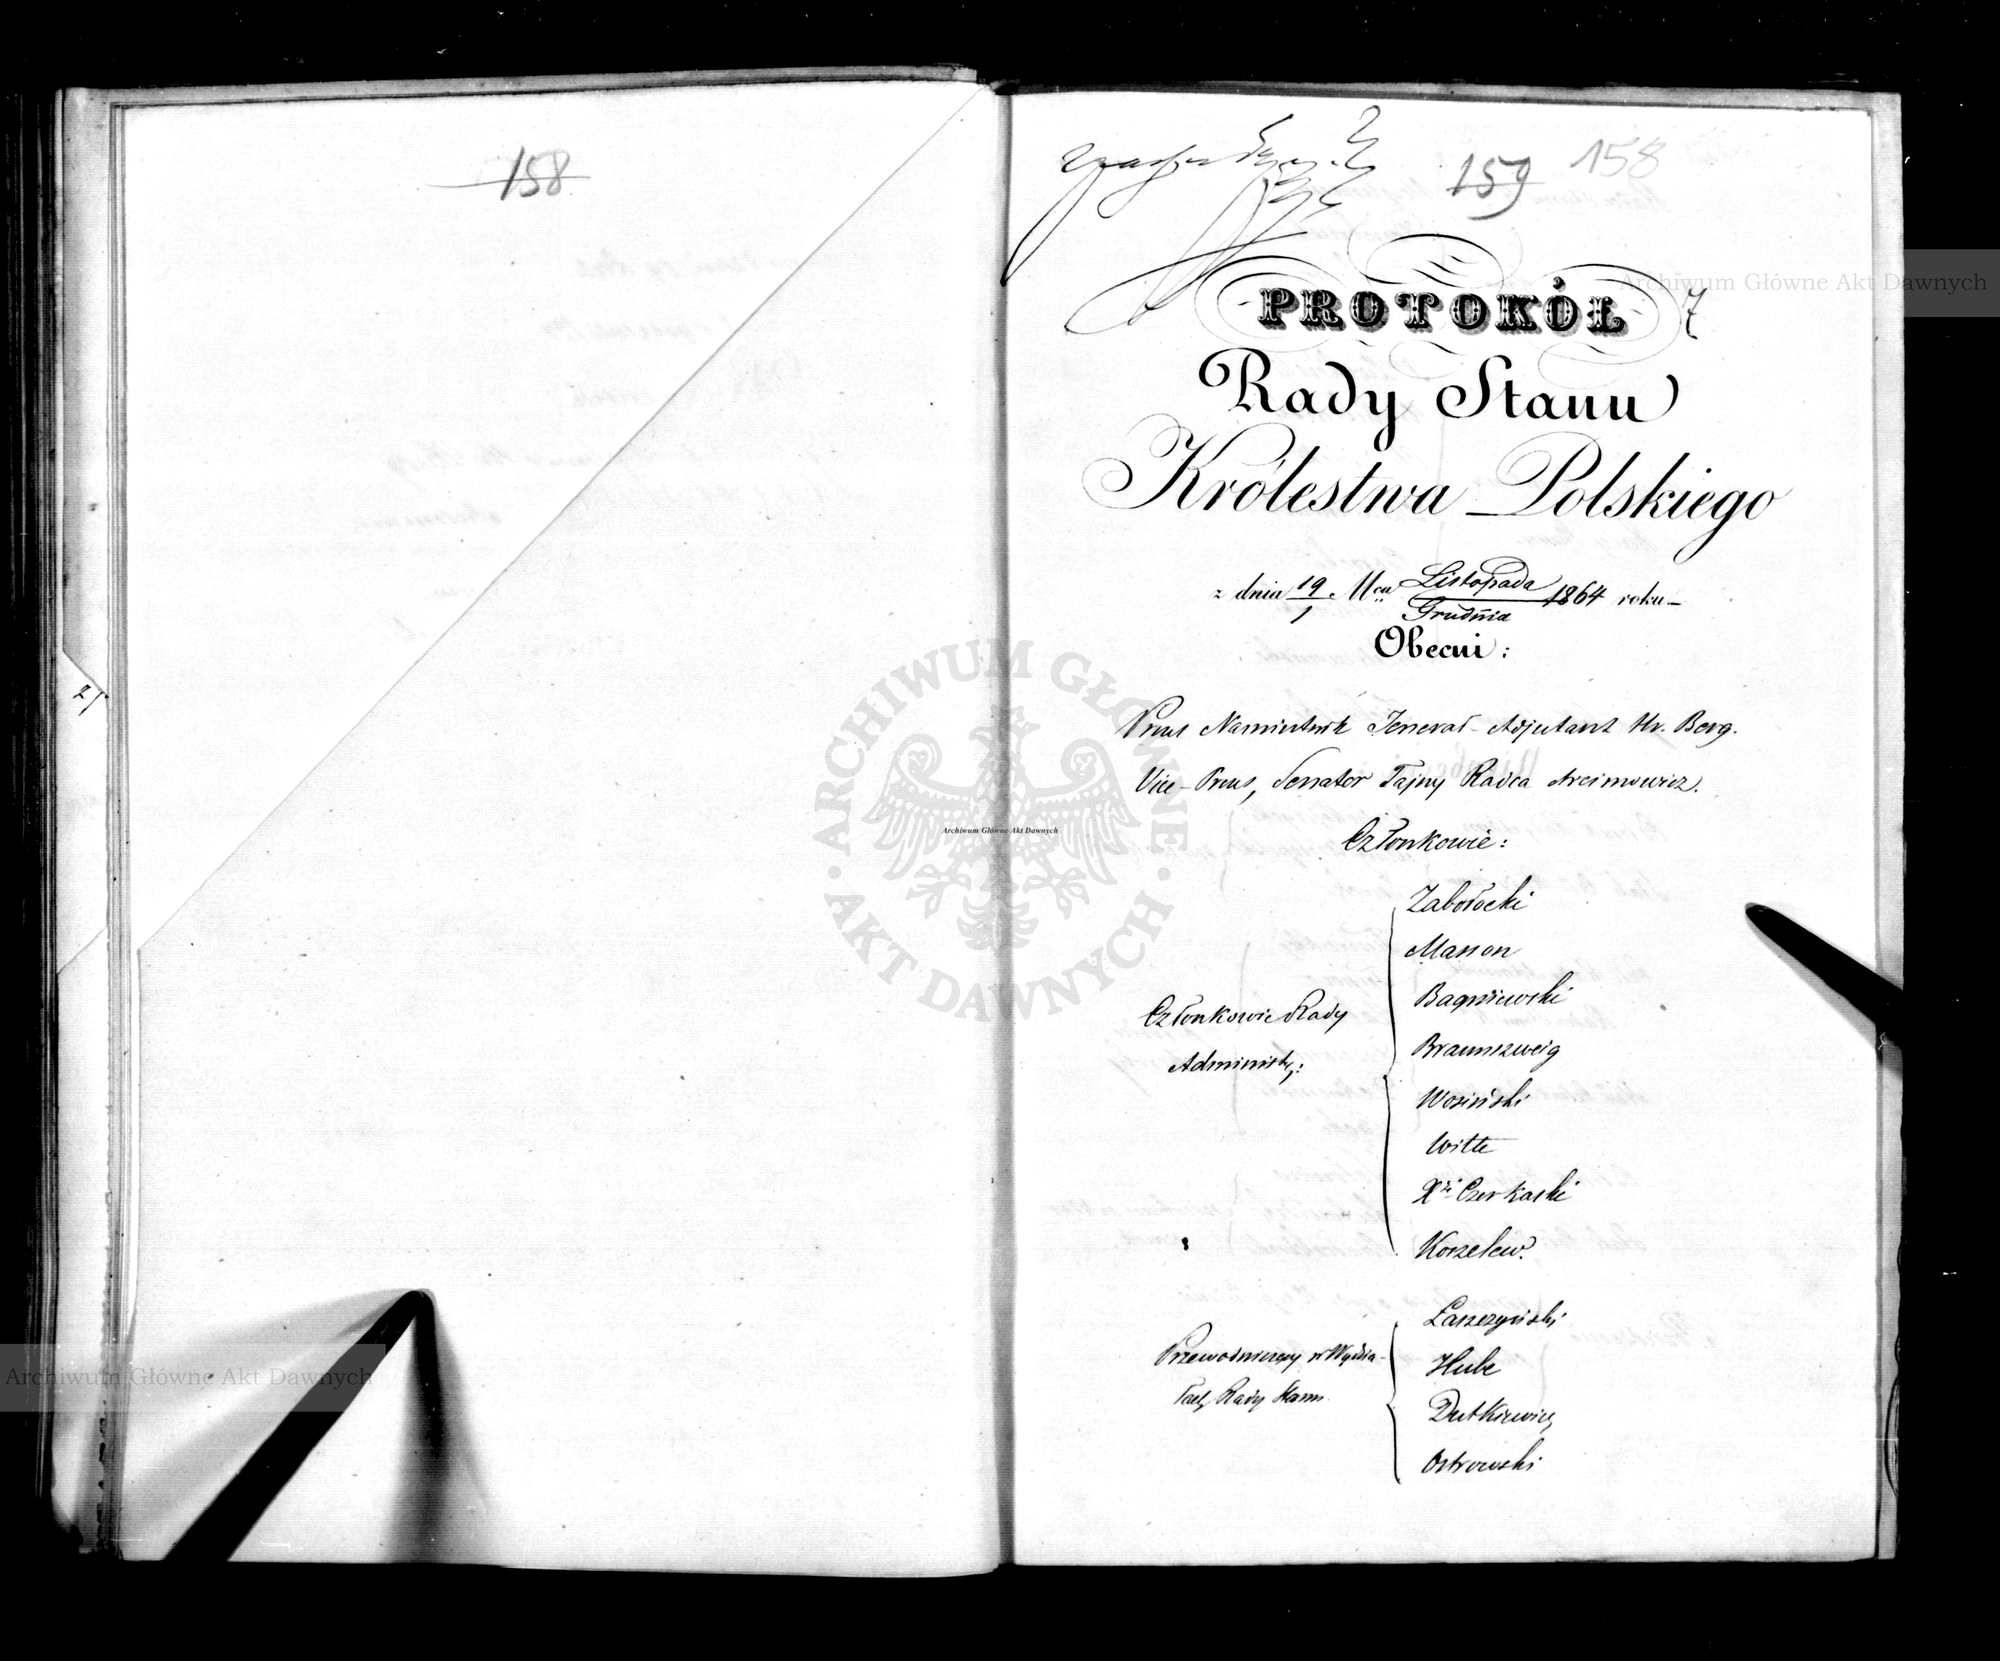 158
159 158
PROTOKÓŁ 7
Rady Stanu
Królestwa Polskiego
z dnia 19/1 Mca Listopada/Grudnia 1864 roku
Obecni:
Prezes Namiestnik Jenerał-Adjutant Hr. Berg.
Vice-Prezes, Senator Tajny Radca Arcimowicz.
Członkowie:
Zabołocki
Masson
Bagniewski
Członkowie Rady
Administ:
Braunszweig
Wosiński
Witte
Xże Czerkaski
Korzelew.
Łaszczyński
Przewodniczący w Wydzia-
łach Rady Stanu
Hube
Dutkiewicz
Ostrowski
21
Archiwum Główne Akt Dawnych
ARCHIWUM GŁÓWNE AKT DAWNYCH
Archiwum Główne Akt Dawnych
Archiwum Główne Akt Dawnych